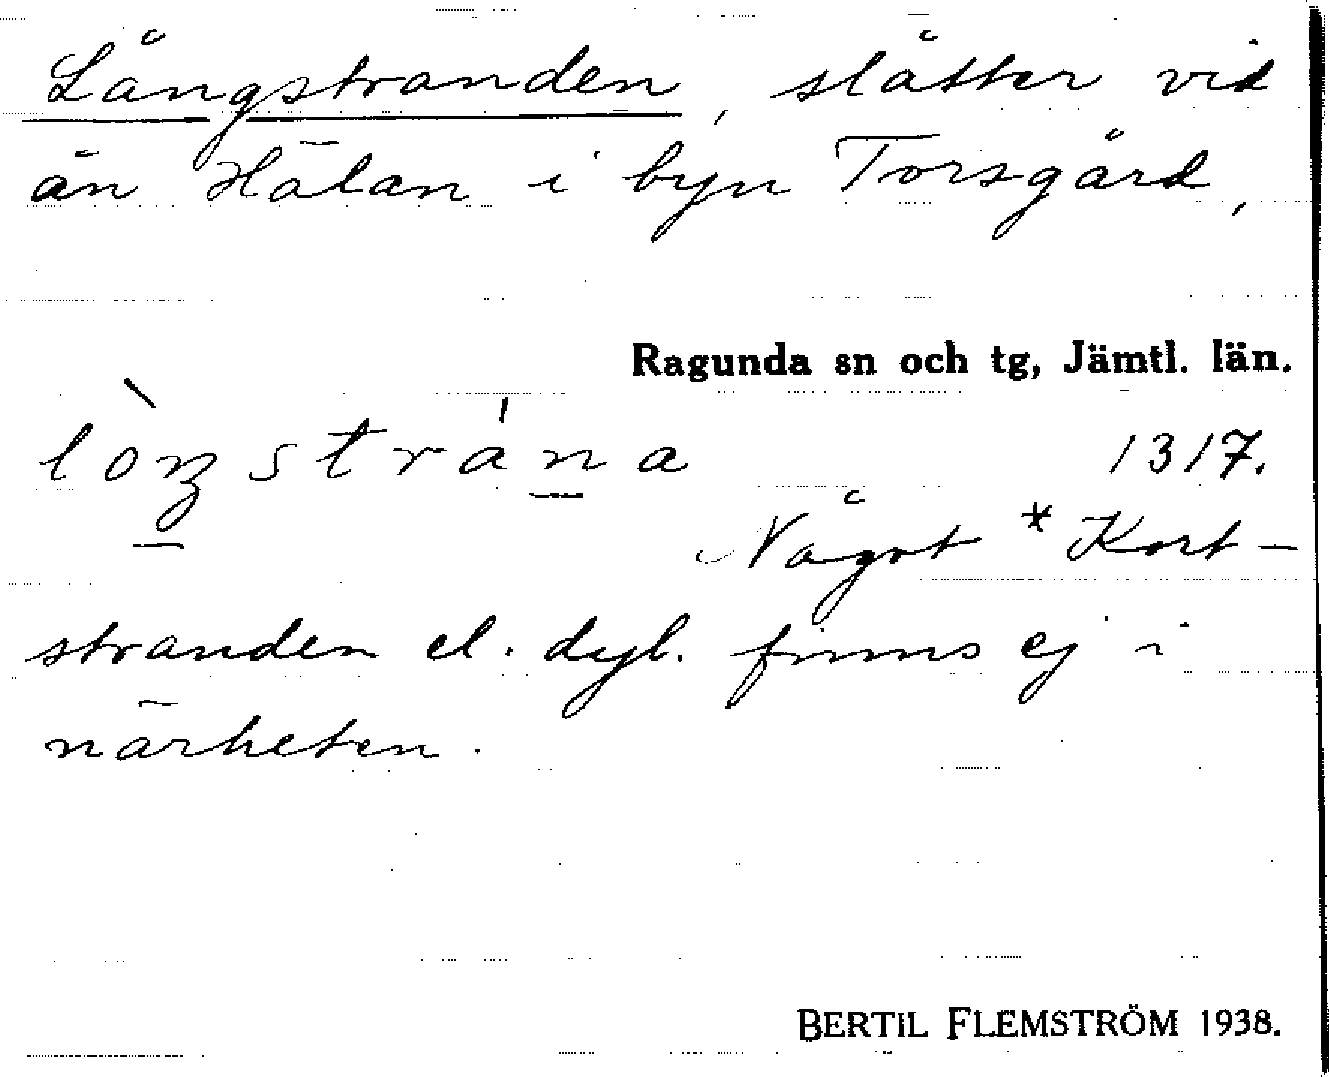 Långstranden, slåtter vid
ån Hälan i byn Torsgård,
Ragunda sn och tg, Jämtl. län.
lòŋstrána 1317.
Något * Kort-
stranden el. dyl. finns ej i
närheten.
BERTIL FLEMSTRÖM 1938.